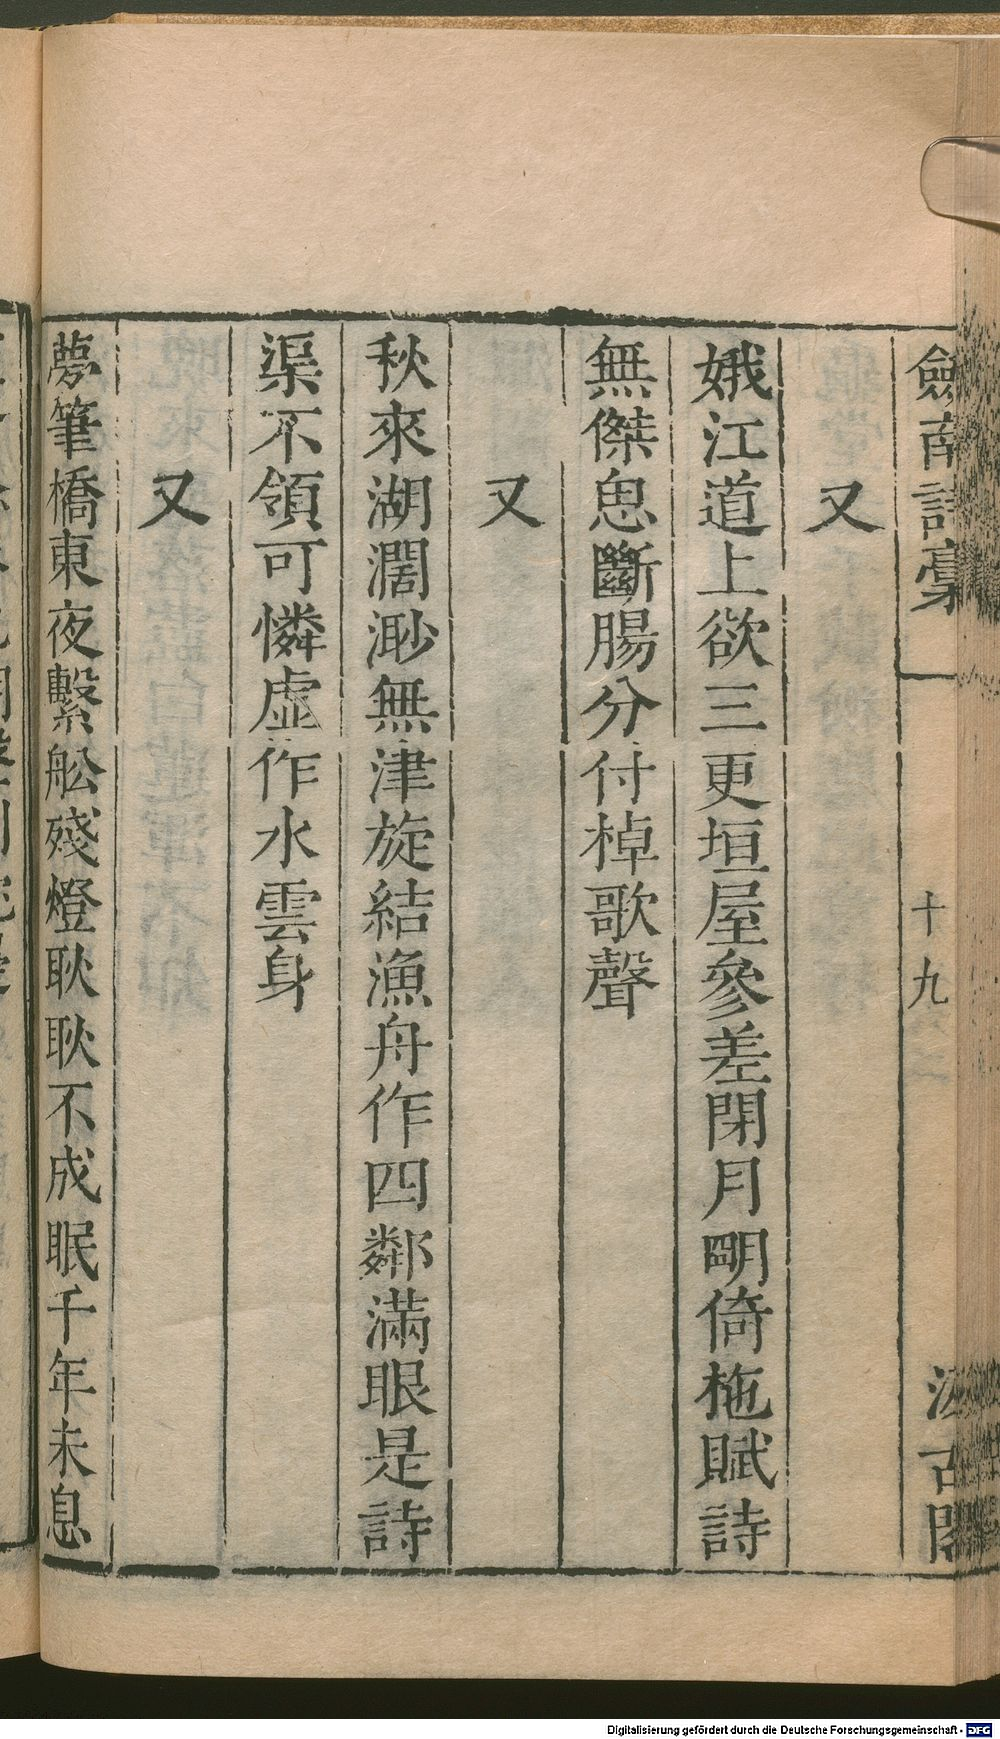 劒南詩稾
十九
汲古閣
又
娥江道上欲三更垣屋參差閉月明倚柂賦詩
無傑思斷腸分付棹歌聲
又
秋來湖濶渺無津旋結漁舟作四鄰滿眼是詩
渠不領可憐虛作水雲身
又
夢筆橋東夜繫舩殘燈耿耿不成眠千年未息
Digitalisierung gefördert durch die Deutsche Forschungsgemeinschaft - DFG